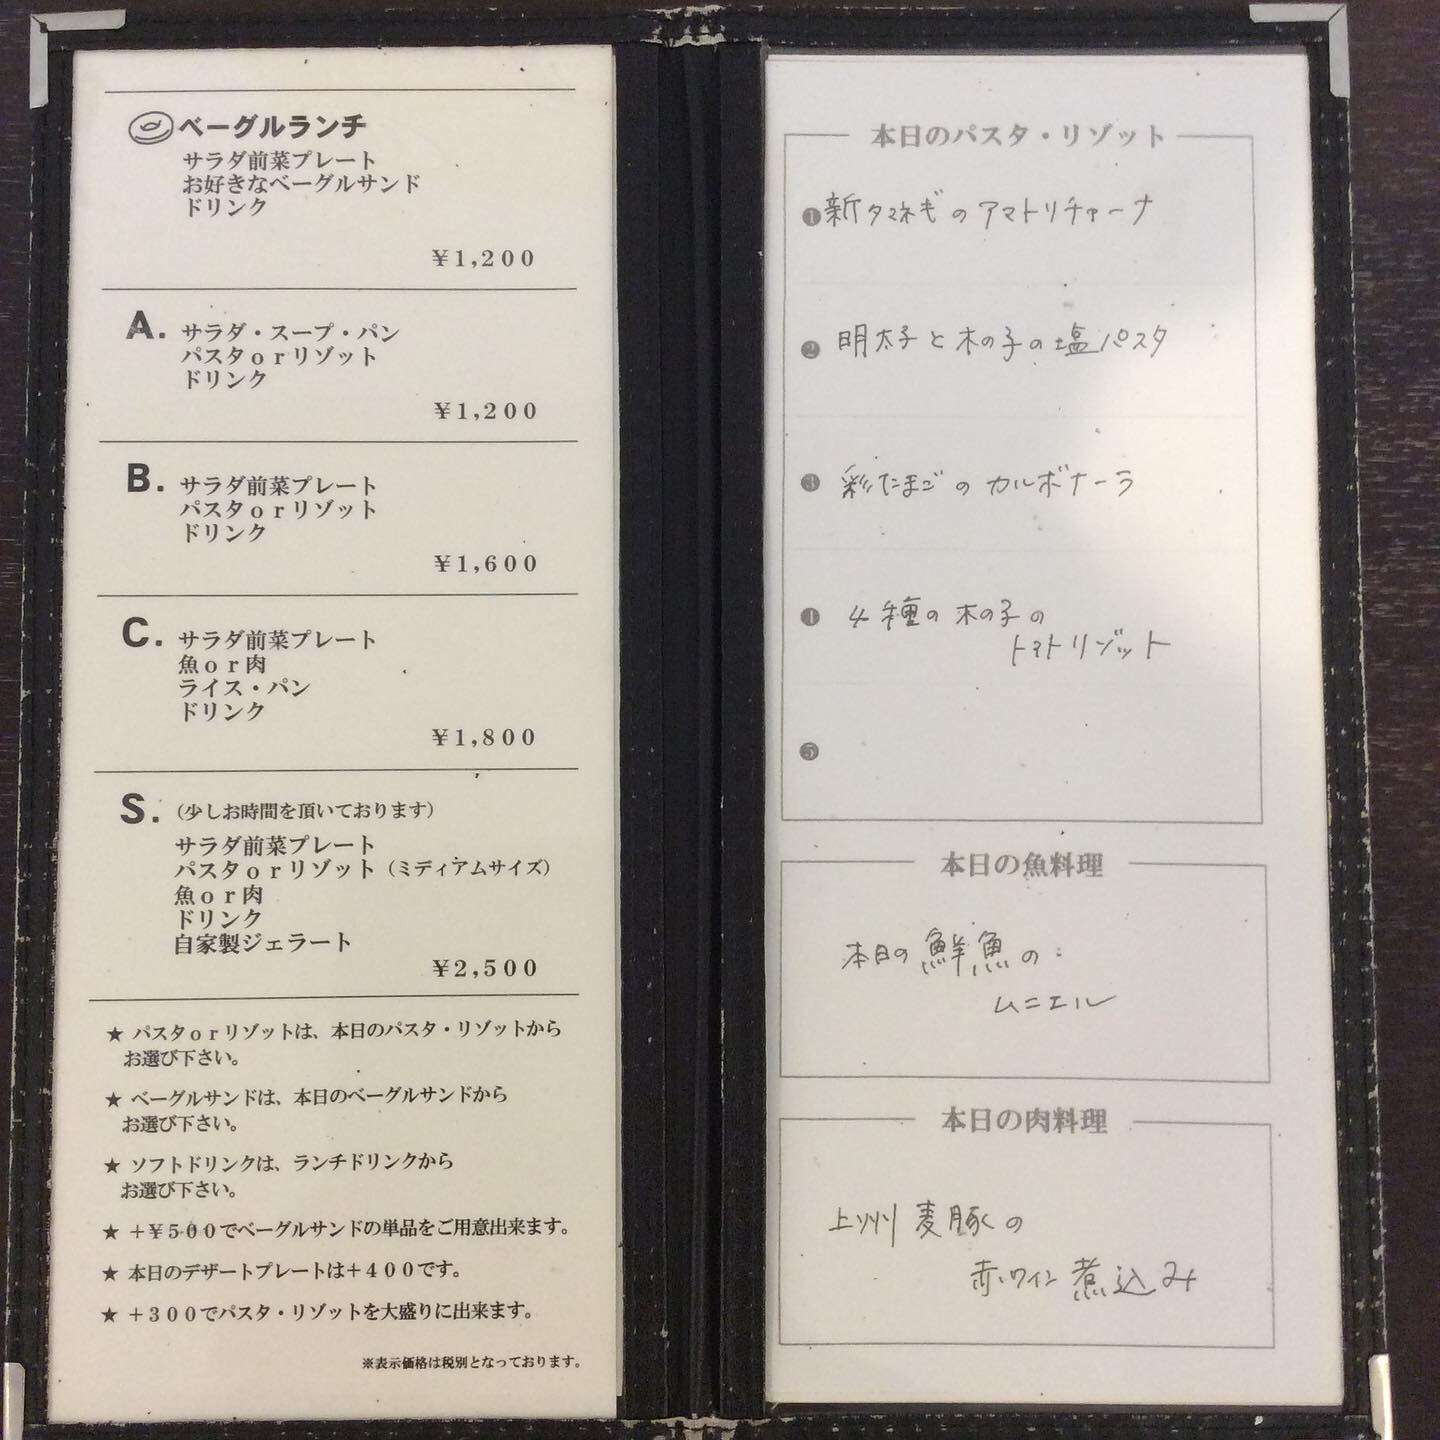 ベーグルランチ
サラダ前菜プレート
お好きなベーグルサンド
ドリンク
￥1,200
A. サラダ・スープ・パン
パスタorリゾット
ドリンク
￥1,200
B. サラダ前菜プレート
パスタorリゾット
ドリンク
￥1,600
C. サラダ前菜プレート
魚or肉
ライス・パン
ドリンク
￥1,800
S. （少しお時間を頂いております）
サラダ前菜プレート
パスタorリゾット（ミディアムサイズ）
魚or肉
ドリンク
自家製ジェラート
￥2,500
★ パスタorリゾットは、本日のパスタ・リゾットから
お選び下さい。
★ ベーグルサンドは、本日のベーグルサンドから
お選び下さい。
★ ソフトドリンクは、ランチドリンクから
お選び下さい。
★ ＋￥500でベーグルサンドの単品をご用意出来ます。
★ 本日のデザートプレートは＋400です。
★ ＋300でパスタ・リゾットを大盛りに出来ます。
※表示価格は税別となっております。
本日のパスタ・リゾット
❶新タマネギのアマトリチャーナ
❷ 明太子と木の子の塩パスタ
❸ 彩たまごのカルボナーラ
❹ 4種の木の子の
トマトリゾット
❺
本日の魚料理
本日の鮮魚の
ムニエル
本日の肉料理
上州麦豚の
赤ワイン煮込み